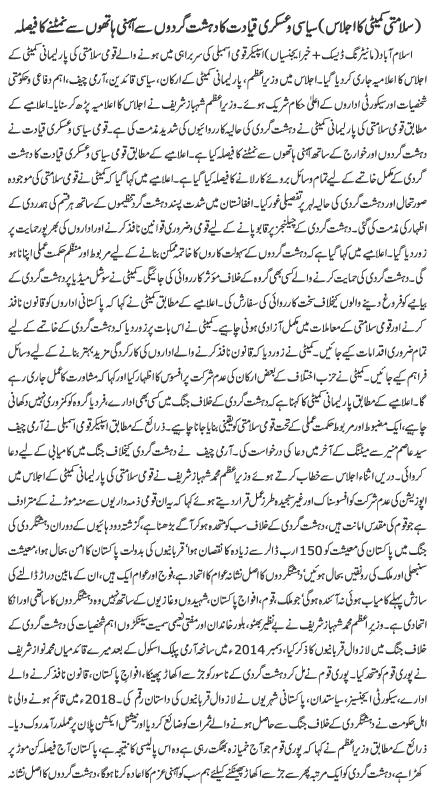 (سلامتی کمیٹی کا اجلاس) سیاسی و عسکری قیادت کا دہشت گردوں سے آہنی ہاتھوں سے نمٹنے کا فیصلہ
اسلام آباد (مانیٹرنگ ڈیسک + خبرایجنسیاں) اسپیکر قومی اسمبلی کی سربراہی میں ہونے والے قومی سلامتی کی پارلیمانی کمیٹی کے
اجلاس کا اعلامیہ جاری کردیا گیا۔ اجلاس میں وزیراعظم، پارلیمانی کمیٹی کے ارکان، سیاسی قائدین، آرمی چیف، اہم دفاعی و حکومتی
شخصیات اور سیکورٹی اداروں کے اعلیٰ حکام شریک ہوئے۔ وزیراعظم شہباز شریف نے اجلاس کا اعلامیہ پڑھ کر سنایا۔
اعلامیے کے مطابق کمیٹی نے دہشت گردی کی حالیہ کارروائیوں کی شدید مذمت کی ہے۔ قومی سیاسی و عسکری قیادت نے
دہشت گردوں اور خوارج کے ساتھ آہنی ہاتھوں سے نمٹنے کا فیصلہ کیا ہے۔ اعلامیے کے مطابق سیاسی و عسکری قیادت کا دہشت
گردی کے مکمل خاتمے کے لیے تمام وسائل بروئے کار لانے کا فیصلہ کیا گیا ہے۔ اعلامیے میں کہا گیا کہ کمیٹی نے قومی سلامتی کی موجودہ
صورتحال اور دہشت گردی کی حالیہ لہر پر تفصیلی غور کیا۔ افغانستان میں شدت پسند دہشت گرد تنظیموں کے ساتھ ہر قسم کی ہمدردی کے
اظہار کی مذمت کی گئی۔ دہشت گردی کے چیلنجز پر قابو پانے کے لیے قومی و ضروری قوانین نافذ کرنے اور اداروں کی بھرپور حمایت پر
زور دیا گیا۔ اعلامیے میں کہا گیا ہے کہ دہشت گردوں کے سہولت کاروں کا خاتمہ ممکن بنانے کے لیے مربوط اور منظم حکمت عملی اپنانا ہو
گی، دہشت گردی کی حمایت کرنے والے کسی بھی گروہ کے خلاف مؤثر کارروائی کی جائیگی۔ کمیٹی نے سوشل میڈیا پر دہشت گردی کے
بیانیے کو فروغ دینے والوں کیخلاف سخت کارروائی کی سفارش کی۔ اعلامیے کے مطابق کمیٹی نے کہا کہ پاکستانی اداروں کو قانون نافذ
کرنے اور قومی سلامتی کے معاملات میں مکمل آزادی ہونی چاہیے۔ کمیٹی نے اس بات پر زور دیا کہ دہشت گردی کے خاتمے کے لیے
تمام ضروری اقدامات کیے جائیں۔ کمیٹی نے زور دیا کہ قانون نافذ کرنے والے اداروں کی کارکردگی مزید بہتر بنانے کے لیے وسائل
فراہم کیے جائیں۔ کمیٹی نے حزب اختلاف کے بعض ارکان کی عدم شرکت پر افسوس کا اظہار کیا اور کہا کہ مشاورت کا عمل جاری رہے
گا۔ اعلامیے کے مطابق پارلیمانی کمیٹی کا کہنا ہے کہ دہشت گردی کے خلاف جنگ میں کسی بھی ادارے، فرد یا گروہ کو کمزوری نہیں دکھانی
چاہیے، ایک مضبوط اور مربوط حکمت عملی کے تحت قومی سلامتی کو یقینی بنایا جانا چاہیے۔ ذرائع کے مطابق اسپیکر قومی اسمبلی نے آرمی چیف
سید عاصم منیر سے میٹنگ کے آخر میں دعا کی درخواست کی۔ آرمی چیف نے دہشت گردی کیخلاف جنگ میں کامیابی کے لیے دعا
کروائی۔ دریں اثناء اجلاس سے خطاب کرتے ہوئے وزیراعظم محمد شہباز شریف نے قومی سلامتی کی پارلیمانی کمیٹی کے اجلاس میں
اپوزیشن کی عدم شرکت کو افسوسناک اور غیر سنجیدہ طرز عمل قرار دیتے ہوئے کہا کہ یہ ان قومی ذمہ داریوں سے منہ موڑنے کے مترادف
ہے جو قوم کی مقدس امانت ہیں، دہشت گردی کے خلاف سب کو متحد ہو کر آگے بڑھنا ہے، گزشتہ دو دہائیوں کے دوران دہشتگردی کی
جنگ میں پاکستان کی معیشت کو 150 ارب ڈالر سے زیادہ کا نقصان ہوا، قربانیوں کی بدولت پاکستان کا امن بحال ہوا، معیشت
سنبھلی اور ملک کی رونقیں بحال ہوئیں، دہشتگردوں کا اصل نشانہ عوام کا اتحاد ہے، فوج اور عوام ایک ہیں، ان کے مابین دراڑ ڈالنے کی
سازش پہلے کامیاب ہوئی نہ آئندہ ہو گی، جو ملک، قوم، افواج پاکستان، شہیدوں و غازیوں کے ساتھ نہیں وہ دہشتگردوں کا ساتھی اور انکا
اتحادی ہے۔ وزیراعظم محمد شہباز شریف نے بے نظیر بھٹو، بلور خاندان اور مفتی نعیمی سمیت سینکڑوں اہم شخصیات کی دہشتگردی کی
جنگ میں لازوال قربانیوں کا ذکر کیا، دسمبر 2014ء میں سانحہ آرمی پبلک اسکول کے بعد میرے قائد میاں محمد نواز شریف نے
قوم کو متحد کیا۔ پوری قوم نے مل کر دہشت گردی کے ناسور کو جڑ سے اکھاڑ پھینکا، افواج پاکستان، قانون نافذ کرنے والے
ادارے، سیکورٹی ایجنسیز، سیاستدان، پاکستانی شہریوں نے لازوال قربانیوں کی داستان رقم کی۔ 2018ء میں قائم ہونے والی نا
اہل حکومت نے دہشت گردی کے خلاف جنگ سے حاصل ہونے والے ثمرات کو ضائع کر دیا اور نیشنل ایکشن پلان پر عملدرآمد روک دیا۔
ذرائع کے مطابق وزیراعظم نے کہا کہ پوری قوم جو آج خمیازہ بھگت رہی ہے وہ اس پالیسی کا نتیجہ ہے، پاکستان آج فیصلہ کن موڑ پر
ہے، دہشت گردی کو ایک مرتبہ پھر سے جڑ سے اکھاڑ پھینکنے کیلئے ہم سب کو آہنی عزم کا اعادہ کرنا ہو گا، دہشت گردوں کا اصل نشانہ